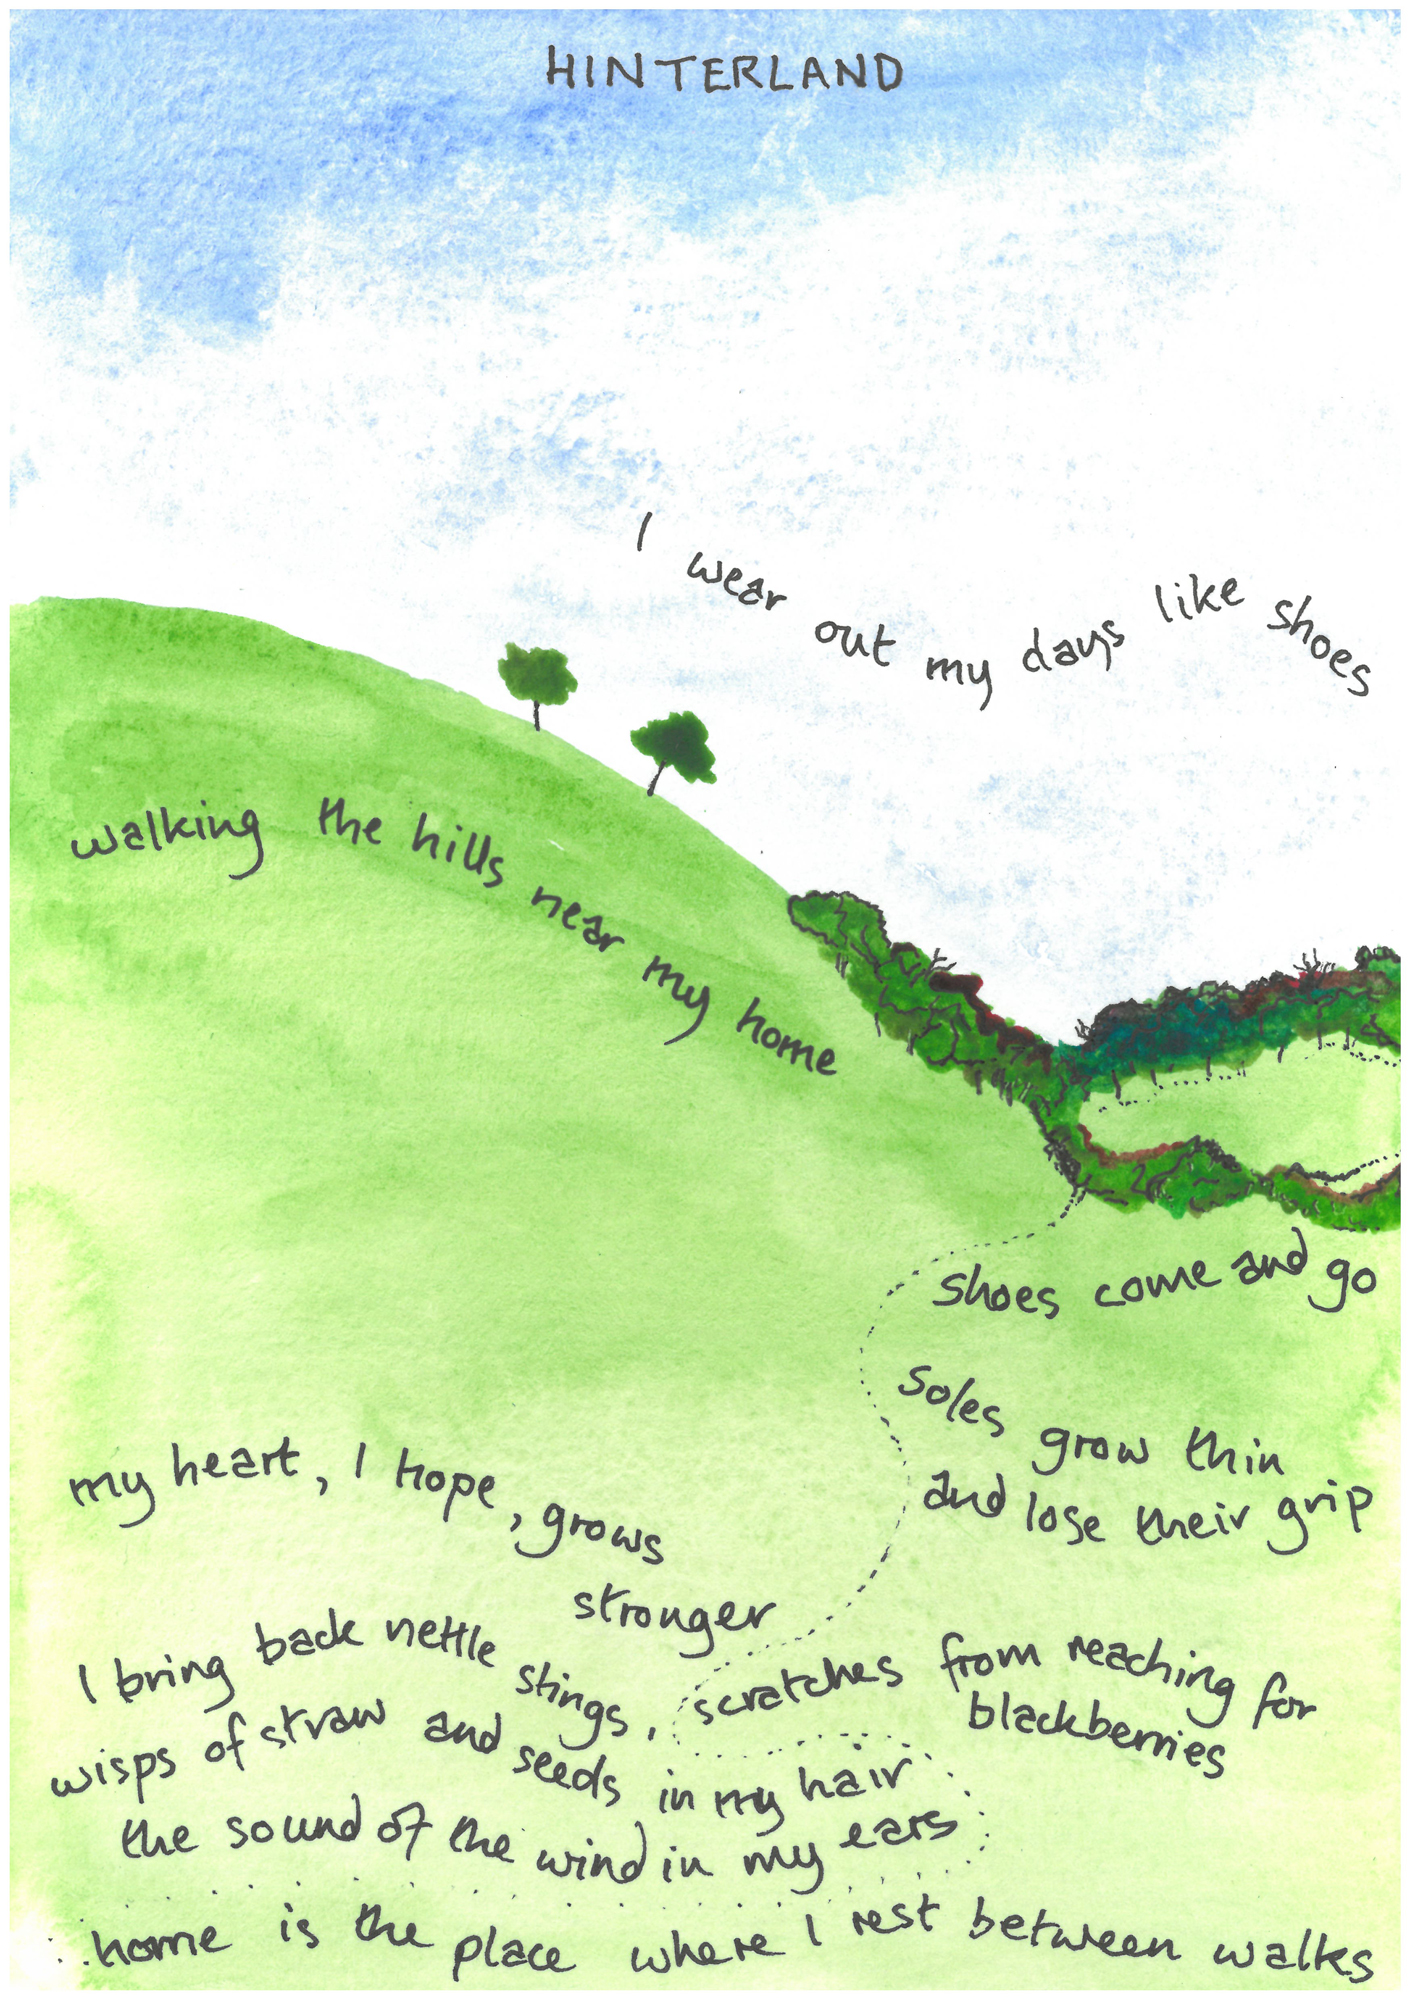 HINTERLAND
I wear out my days like shoes
walking the hills near my home
shoes come and go
soles grow thin
and lose their grip
my heart, I hope, grows
stronger
I bring back nettle stings, scratches from reaching for
blackberries
wisps of straw and seeds in my hair
the sound of the wind in my ears
home is the place where I rest between walks